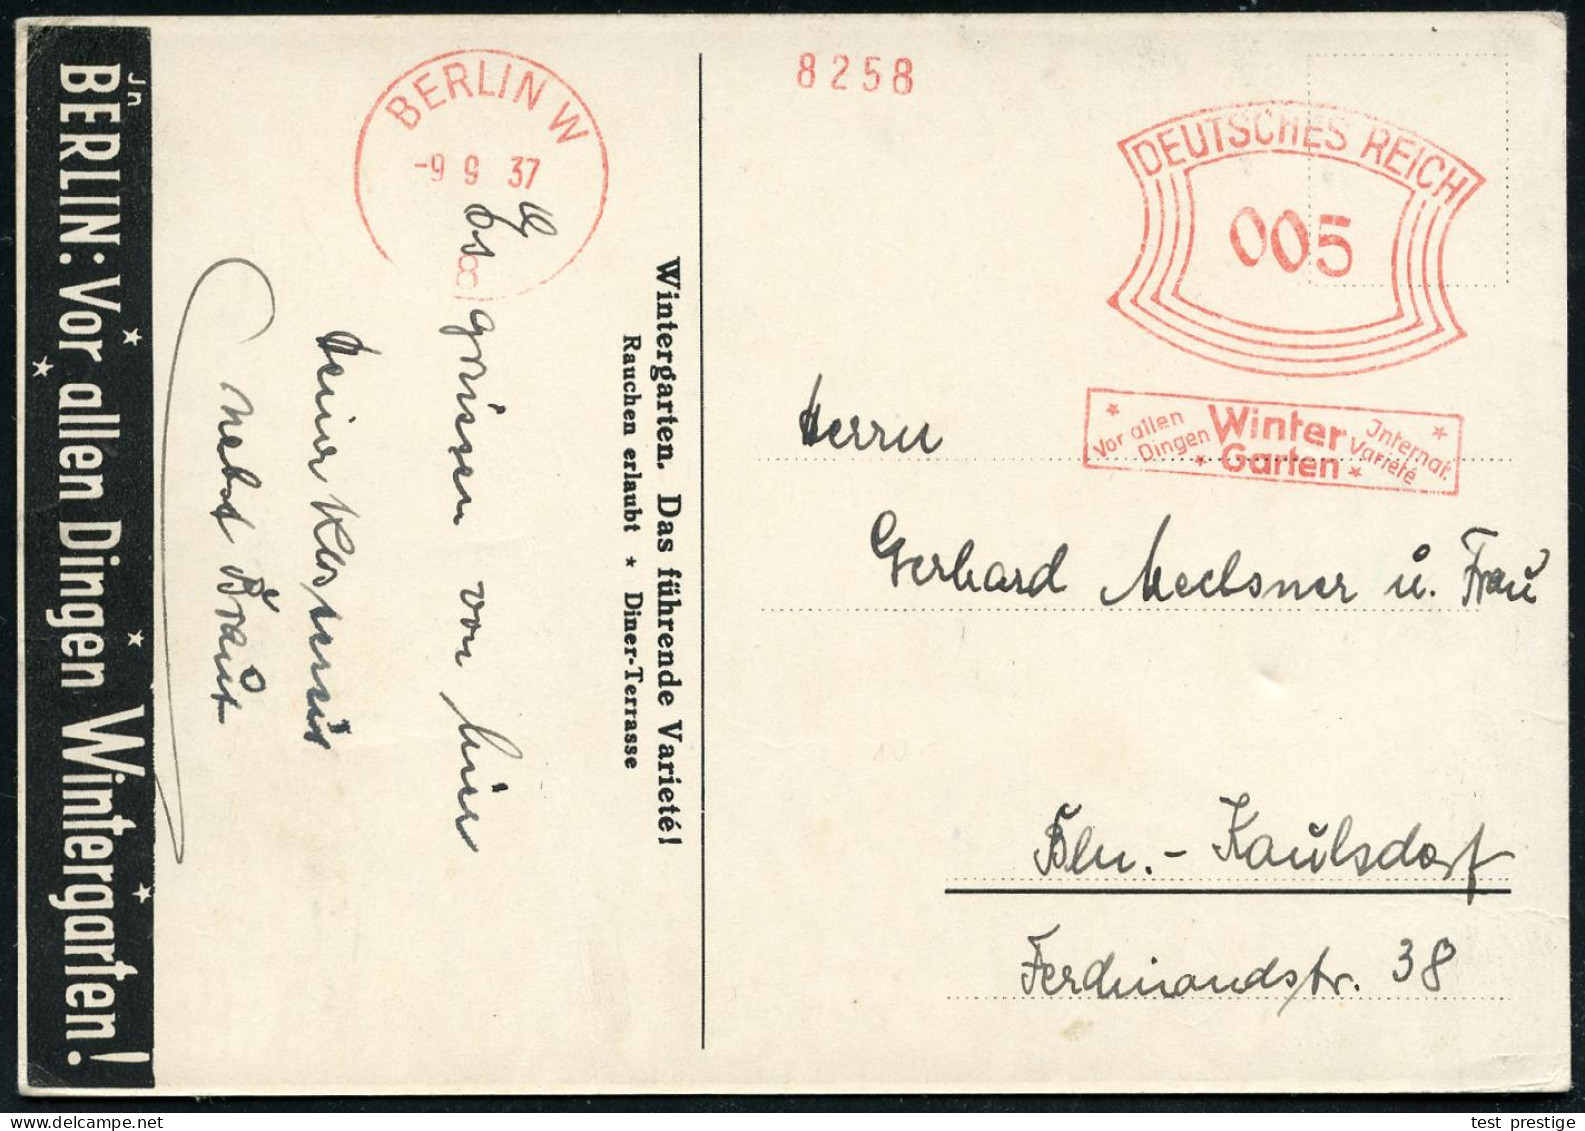 Jn
BERLIN: Vor allen Dingen Wintergarten!
BERLIN W
-9 9 37
Es grüssen von hier
Heiner
nebst Braut
Wintergarten. Das führende Varieté!
Rauchen erlaubt * Diner-Terrasse
8258
DEUTSCHES REICH
005
Vor allen Dingen
Winter Garten
Internat. Varieté
Herrn
Gerhard Meelsner u. Frau
Bln.- Kaulsdorf
Ferdinandstr. 38
test_prestige